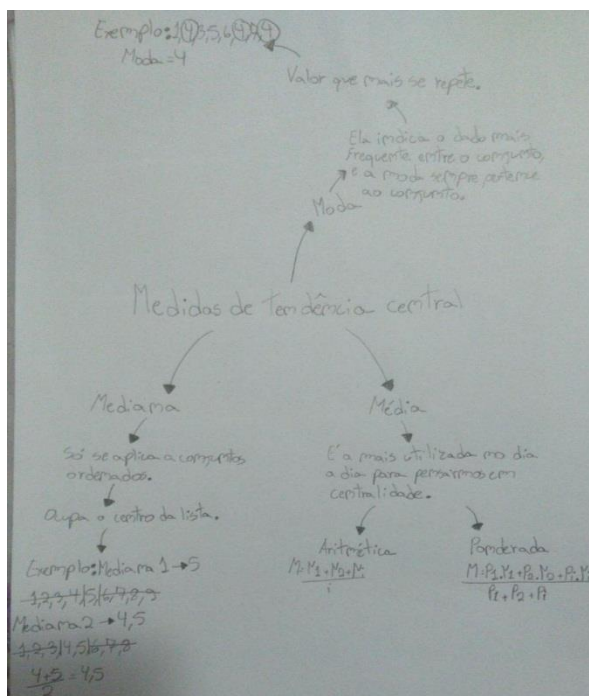 Exemplo: 1,4,3,5,6,4,7,4
Moda = 4
Valor que mais se repete.
Ela indica o dado mais
frequente entre o conjunto,
e a moda sempre pertence
ao conjunto.
Moda
Medidas de tendência central
Mediana
Só se aplica a conjuntos
ordenados.
Ocupa o centro da lista.
Exemplo: Mediana 1 → 5
1,2,3,4|5|6,7,8,9
Mediana 2 → 4,5
1,2,3|4,5|6,7,8
4+5 = 4,5
2
Média
É a mais utilizada no dia
a dia para pensarmos em
centralidade.
Aritmética
Ponderada